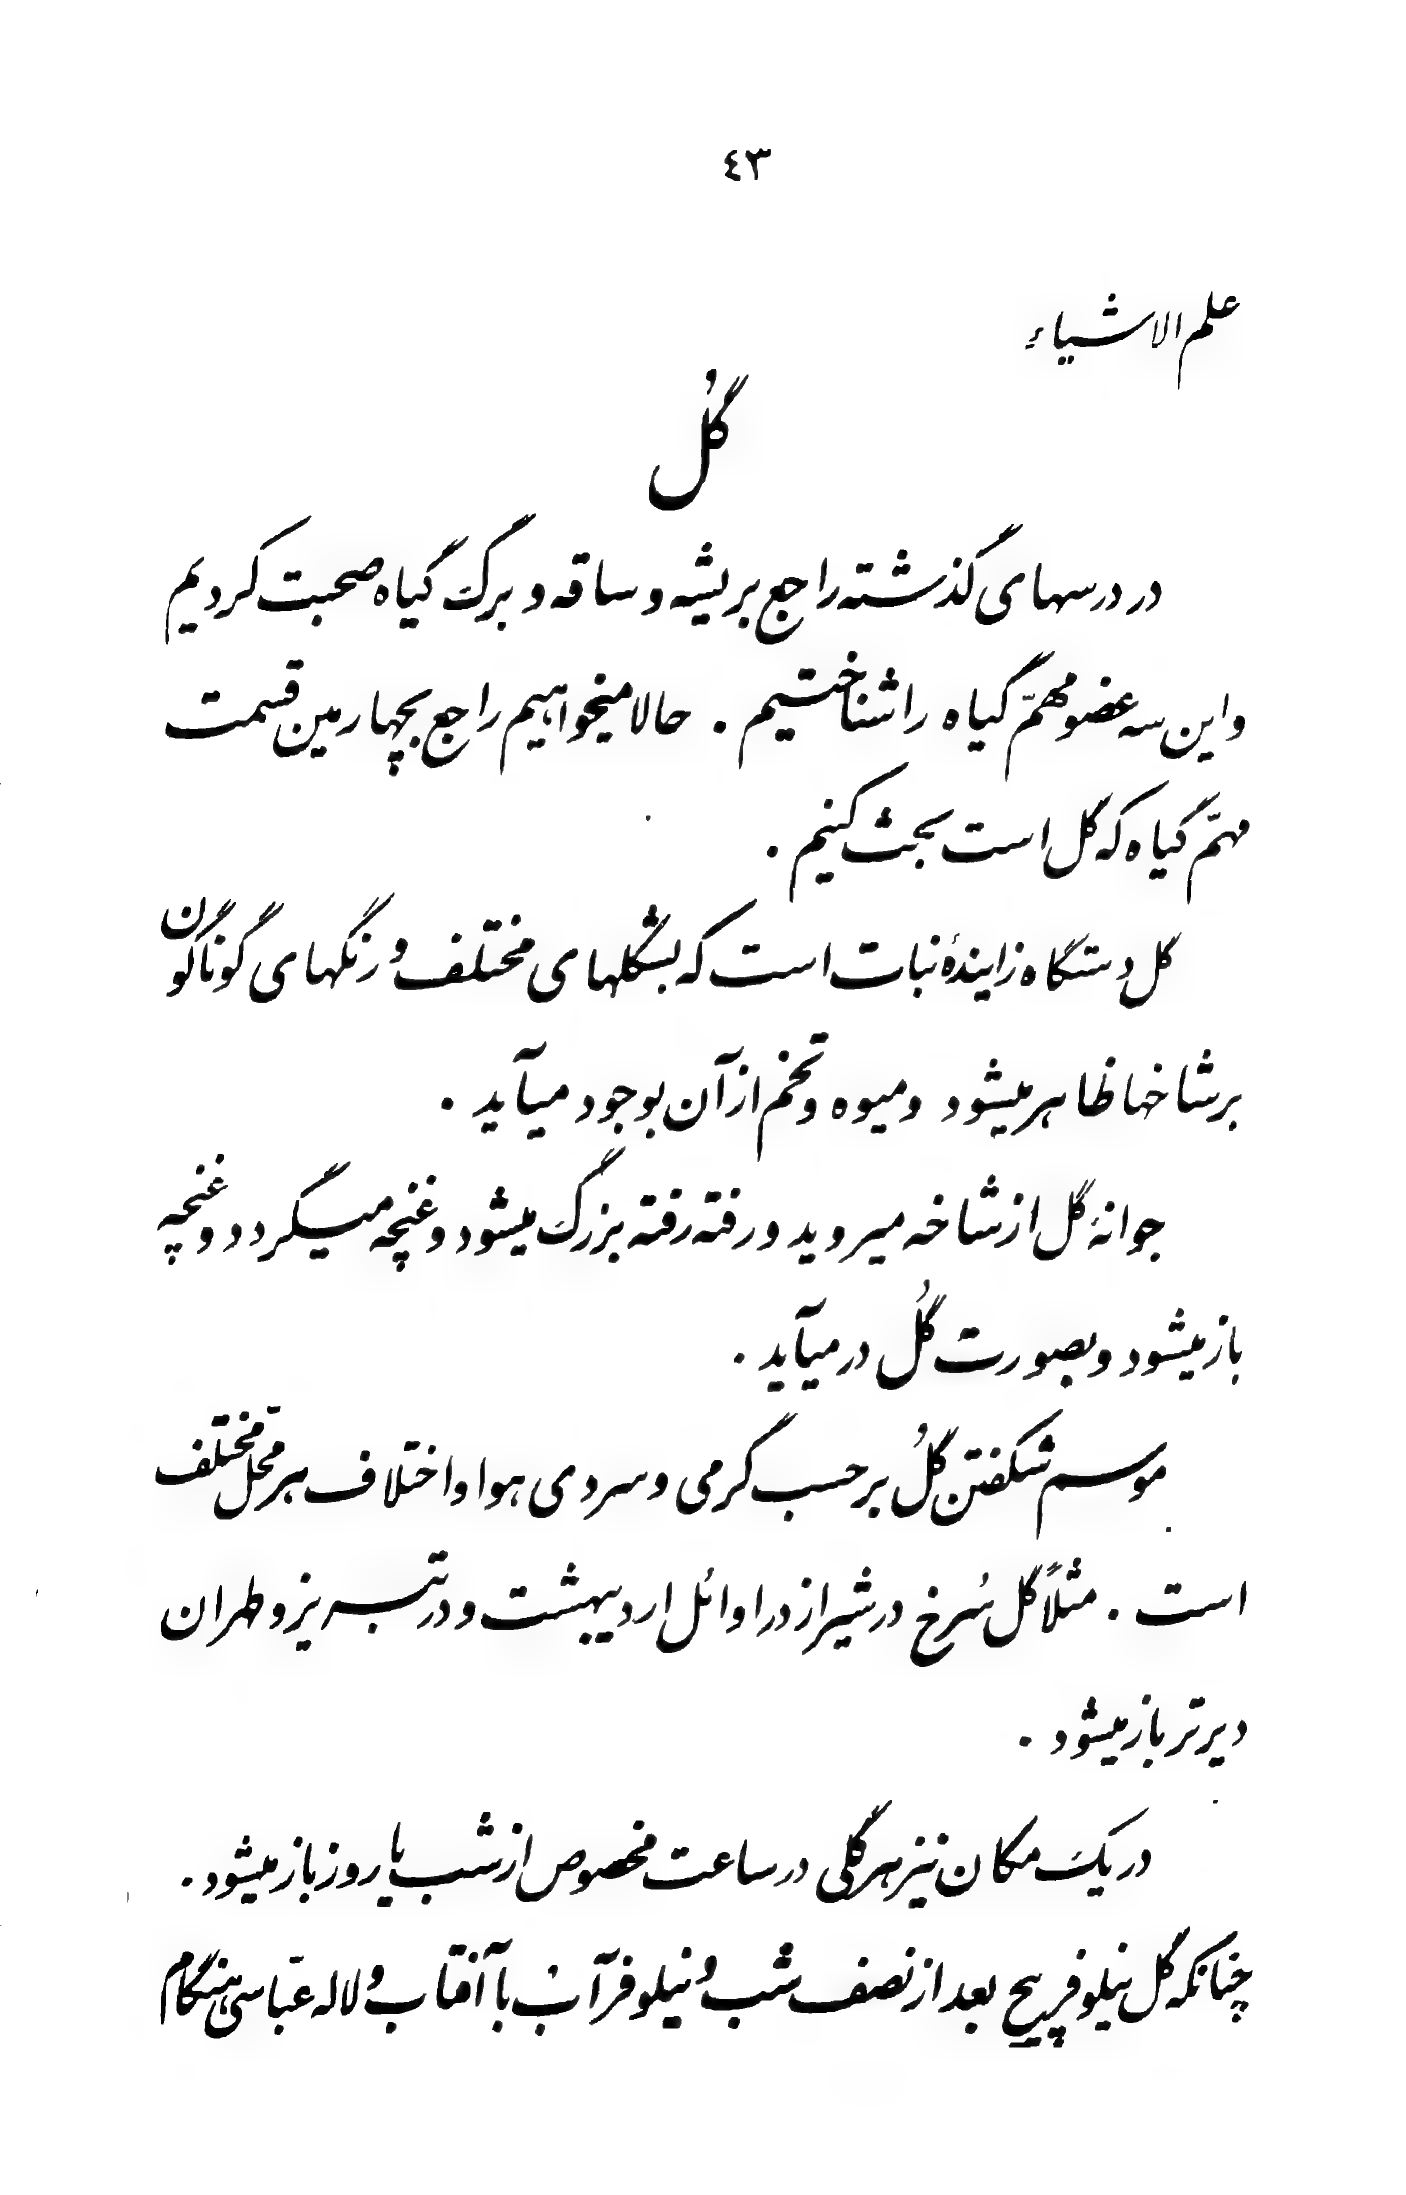 ٤٣
علم الاشیاء
گُل
در درسهای گذشته راجع بریشه و ساقه و برگ گیاه صحبت کردیم
و این سه عضو مهمّ گیاه را شناختیم . حالا میخواهیم راجع بچهارمین قسمت
مهمّ گیاه که گل است بحث کنیم .
گل دستگاه زایندهٔ نبات است که بشکلهای مختلف و رنگهای گوناگون
بر شاخها ظاهر میشود و میوه و تخم از آن بوجود میآید .
جوانهٔ گل از شاخه میروید و رفته رفته بزرگ میشود و غنچه میگردد و غنچه
باز میشود و بصورت گُل در میآید .
موسم شکفتن گُل بر حسب گرمی و سردی هوا و اختلاف هر محلّ مختلف
است . مثلاً گل سُرخ در شیراز در اوائل اردیبهشت و در تبریز و طهران
دیرتر باز میشود .
در یک مکان نیز هر گلی در ساعت مخصوص از شب یا روز باز میشود .
چنانکه گل نیلوفر پیچ بعد از نصف شب و نیلوفر آب با آفتاب و لاله عبّاسی هنگام